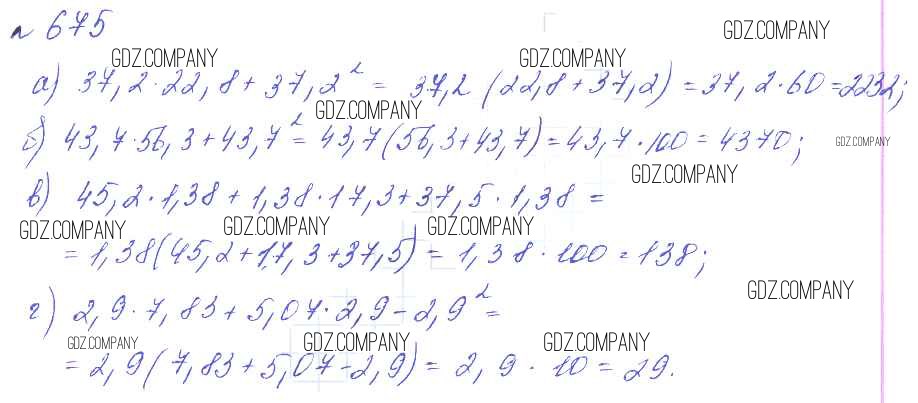 № 675
GDZ.COMPANY
GDZ.COMPANY GDZ.COMPANY
а) 37,2·22,8+37,2² = 37,2(22,8+37,2)=37,2·60=2232;
GDZ.COMPANY
б) 43,7·56,3+43,7² = 43,7(56,3+43,7)=43,7·100=4370; GDZ.COMPANY
GDZ.COMPANY
в) 45,2·1,38+1,38·17,3+37,5·1,38=
GDZ.COMPANY GDZ.COMPANY GDZ.COMPANY
=1,38(45,2+17,3+37,5)=1,38·100=138;
GDZ.COMPANY
г) 2,9·7,83+5,07·2,9-2,9² =
GDZ.COMPANY GDZ.COMPANY GDZ.COMPANY
=2,9(7,83+5,07-2,9)=2,9·10=29.